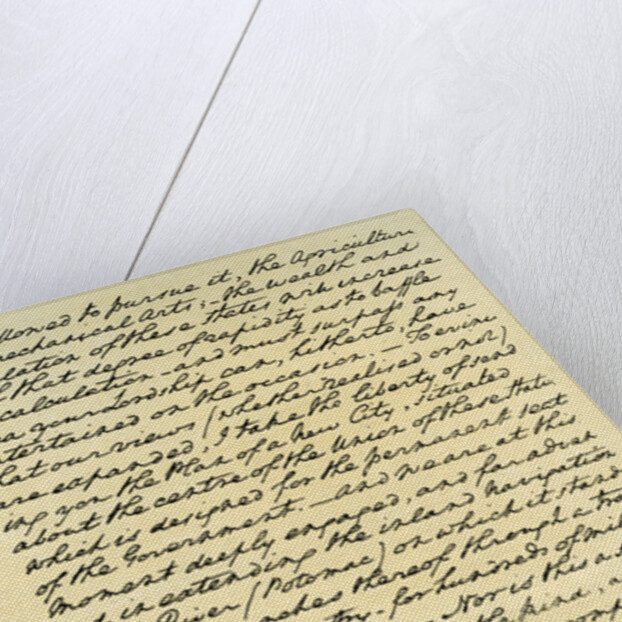 llowed to pursue it, the Agriculture
mechanical Arts; - the wealth and
lation of these States will increase
that degree of rapidity as to baffle
calculation - and must surpass any
your Lordship can, hitherto, have
tertained on the occasion. - To evince
hat our views (whether realised or not)
are expanded, I take the liberty of send
ing you the Plan of a New City, situated
about the centre of the Union of these States,
which is designed for the permanent seat
of the Government. - and we are at this
moment deeply engaged, and far advan
in extending the inland navigation
River (Potomac) on which it stand
nches thereof through a tra
try - for hundreds of mil
Nor is this a s
the kind, a